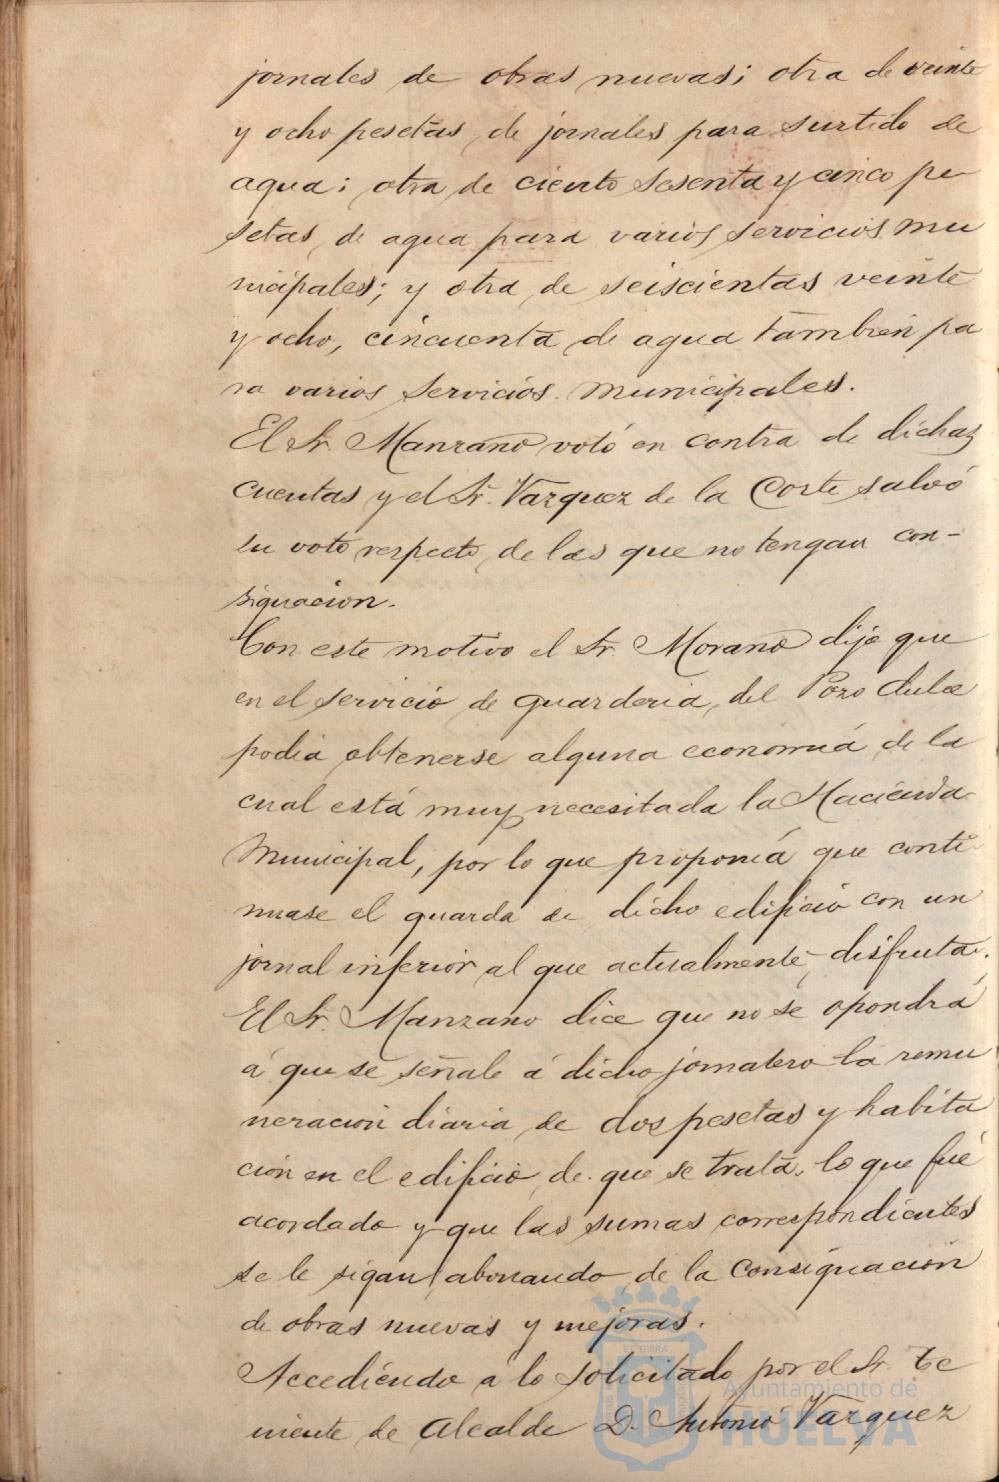 jornales de obras nuevas; otra de veinte
y ocho pesetas de jornales para surtido de
agua; otra de ciento sesenta y cinco pe
setas, de agua para varios servicios mu
nicipales; y otra de seiscientas veinte
y ocho, cincuenta de agua también pa
ra varios servicios municipales.
El Sr. Manzano votó en contra de dichas
cuentas y el Sr. Vazquez de la Corte salvó
su voto respecto de las que no tengan con-
signacion.
Con este motivo el Sr. Morano dijo que
en el servicio de guarderia del Pozo dulce
podia obtenerse alguna economiá de la
cual está muy necesitada la Hacienda
Municipal, por lo que proponiá que conti
nuase el guarda de dicho edificio con un
jornal inferior al que actualmente disfruta.
El Sr. Manzano dice que no se opondrá
á que se señale á dicho jornalero la remu
neracion diaria de dos pesetas y habita
ción en el edificio de que se trata, lo que fué
acordado y que las sumas correspondientes
se le sigan abonando de la consignacion
de obras nuevas y mejoras.
Accediendo á lo solicitado por el Sr. te
niente de Alcalde D. Antonio Vazquez
Ayuntamiento de
HUELVA